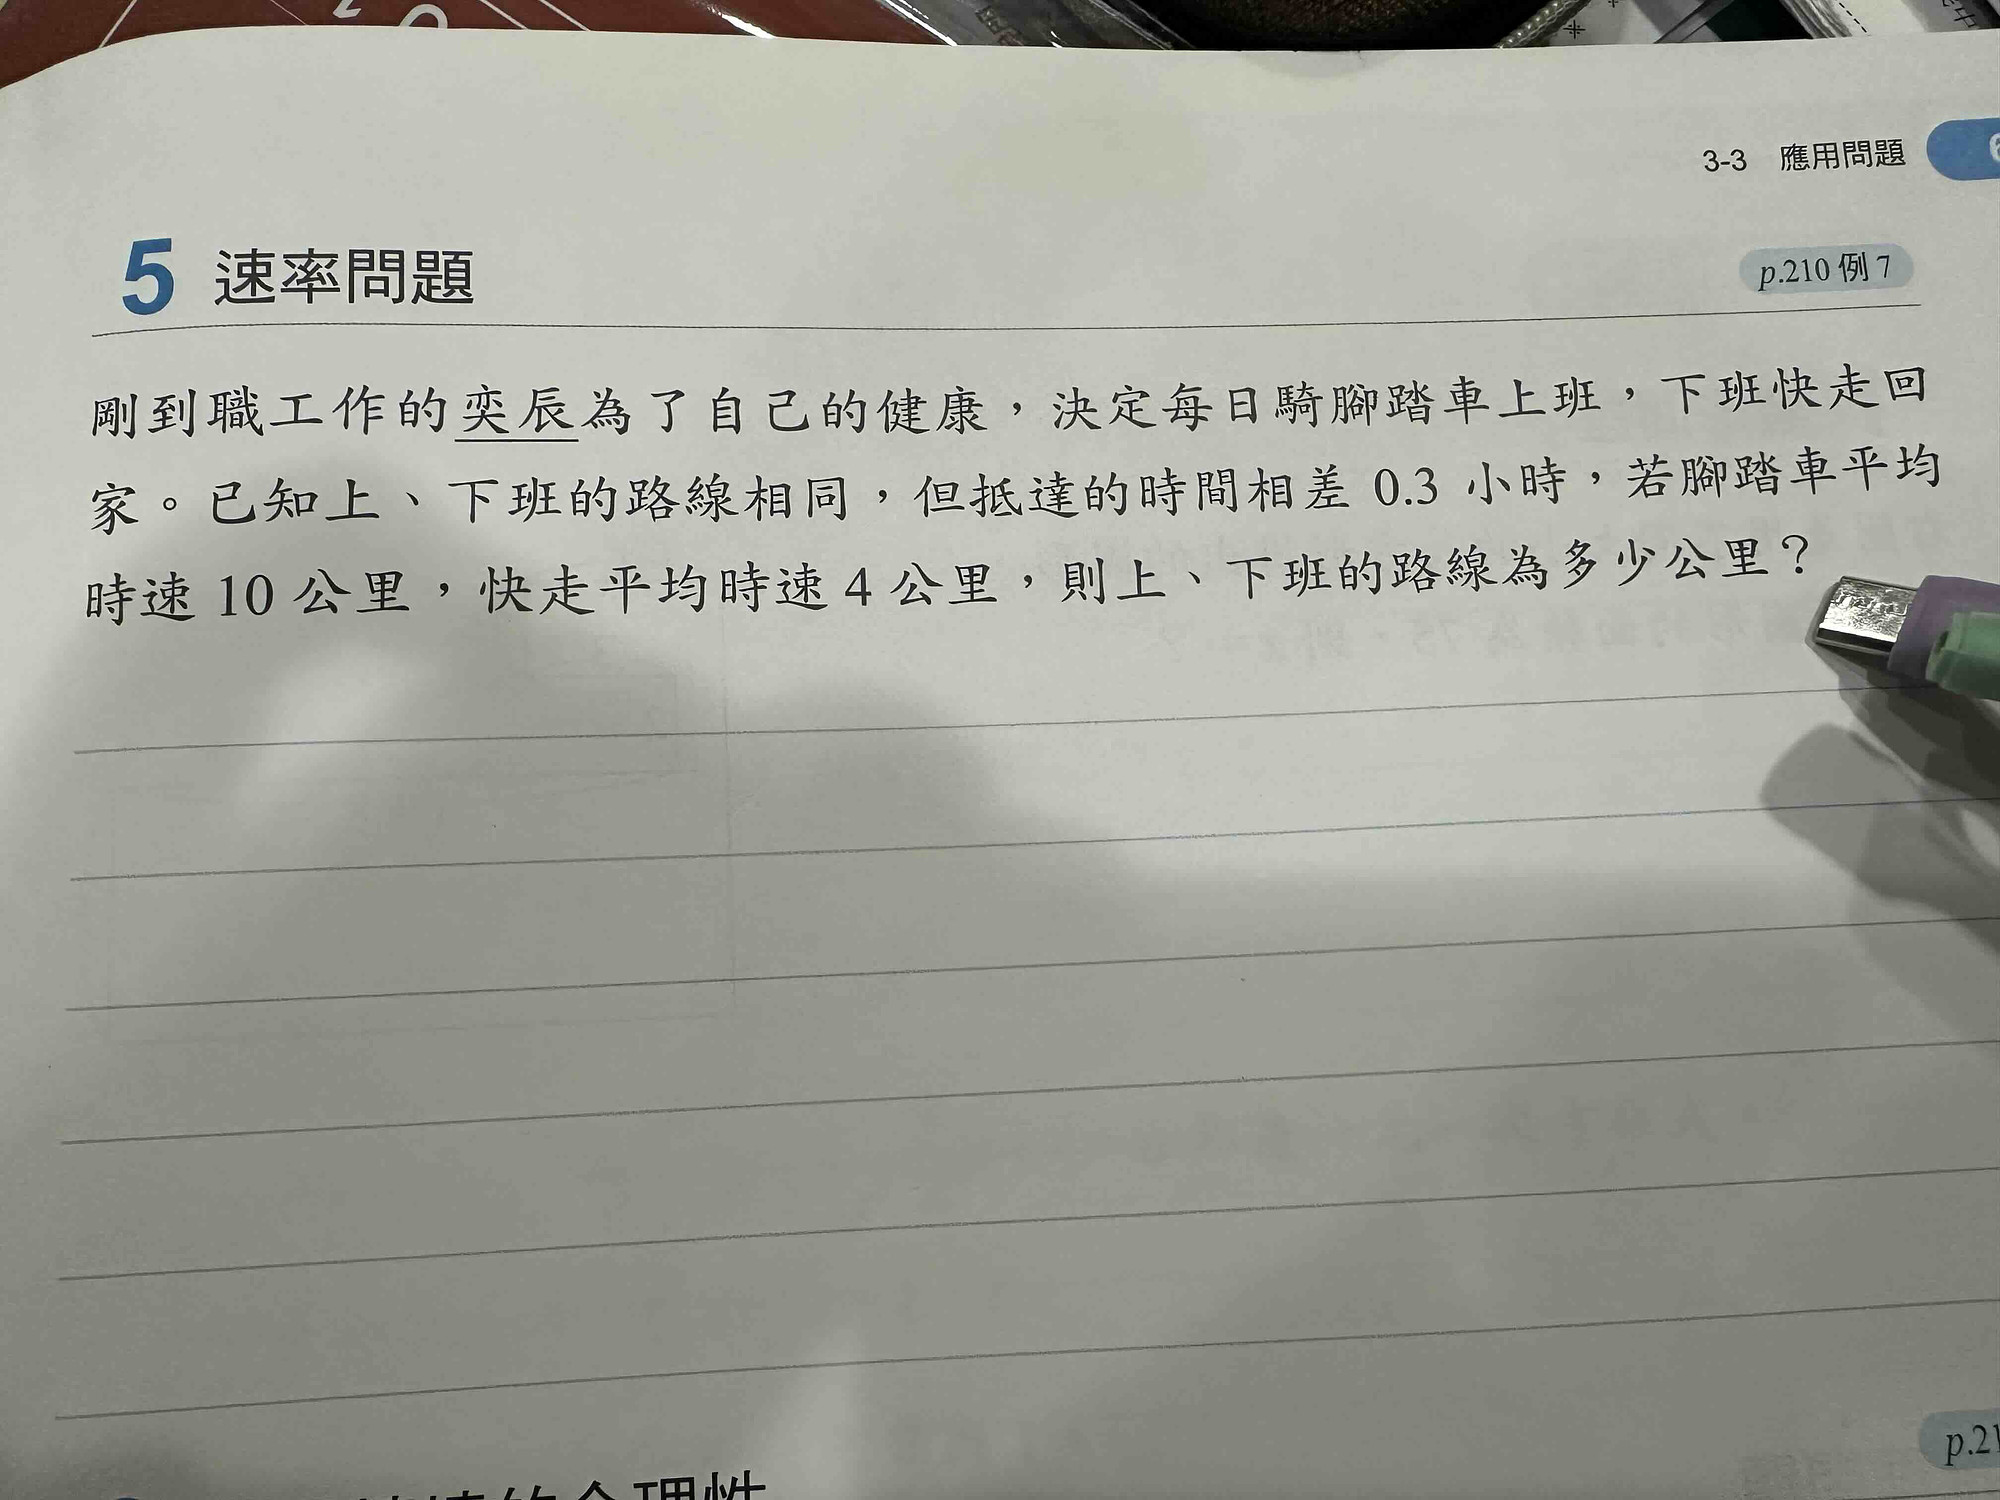 3-3 應用問題
5 速率問題
p.210 例 7
剛到職工作的奕辰為了自己的健康，決定每日騎腳踏車上班，下班快走回
家。已知上、下班的路線相同，但抵達的時間相差 0.3 小時，若腳踏車平均
時速 10 公里，快走平均時速 4 公里，則上、下班的路線為多少公里？
p.21
的合理性